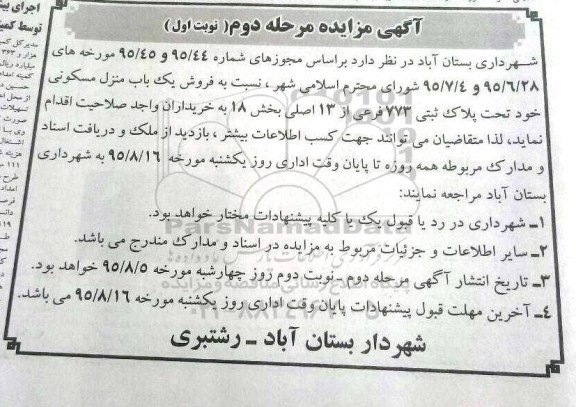 آگهی مزایده مرحله دوم( نوبت اول )
شهرداری بستان آباد در نظر دارد براساس مجوزهای شماره ۹۵/۴۴ و ۹۵/۴۵ مورخه های
۹۵/۶/۲۸ و ۹۵/۷/۴ شورای محترم اسلامی شهر ، نسبت به فروش یک باب منزل مسکونی
خود تحت پلاک ثبتی ۷۷۳ فرعی از ۱۳ اصلی بخش ۱۸ به خریداران واجد صلاحیت اقدام
نماید، لذا متقاضیان می توانند جهت کسب اطلاعات بیشتر ، بازدید از ملک و دریافت اسناد
و مدارک مربوطه همه روزه تا پایان وقت اداری روز یکشنبه مورخه ۹۵/۸/۱۶ به شهرداری
بستان آباد مراجعه نمایند:
۱ـ شهرداری در رد یا قبول یک یا کلیه پیشنهادات مختار خواهد بود.
۲ـ سایر اطلاعات و جزئیات مربوط به مزایده در اسناد و مدارک مندرج می باشد.
۳ـ تاریخ انتشار آگهی مرحله دوم ـ نوبت دوم روز چهارشبه مورخه ۹۵/۸/۵ خواهد بود.
۴ـ آخرین مهلت قبول پیشنهادات پایان وقت اداری روز یکشنبه مورخه ۹۵/۸/۱۶ می باشد.
شهردار بستان آباد ـ رشتبری
ParsNamadData
اجرای
توسط کمی